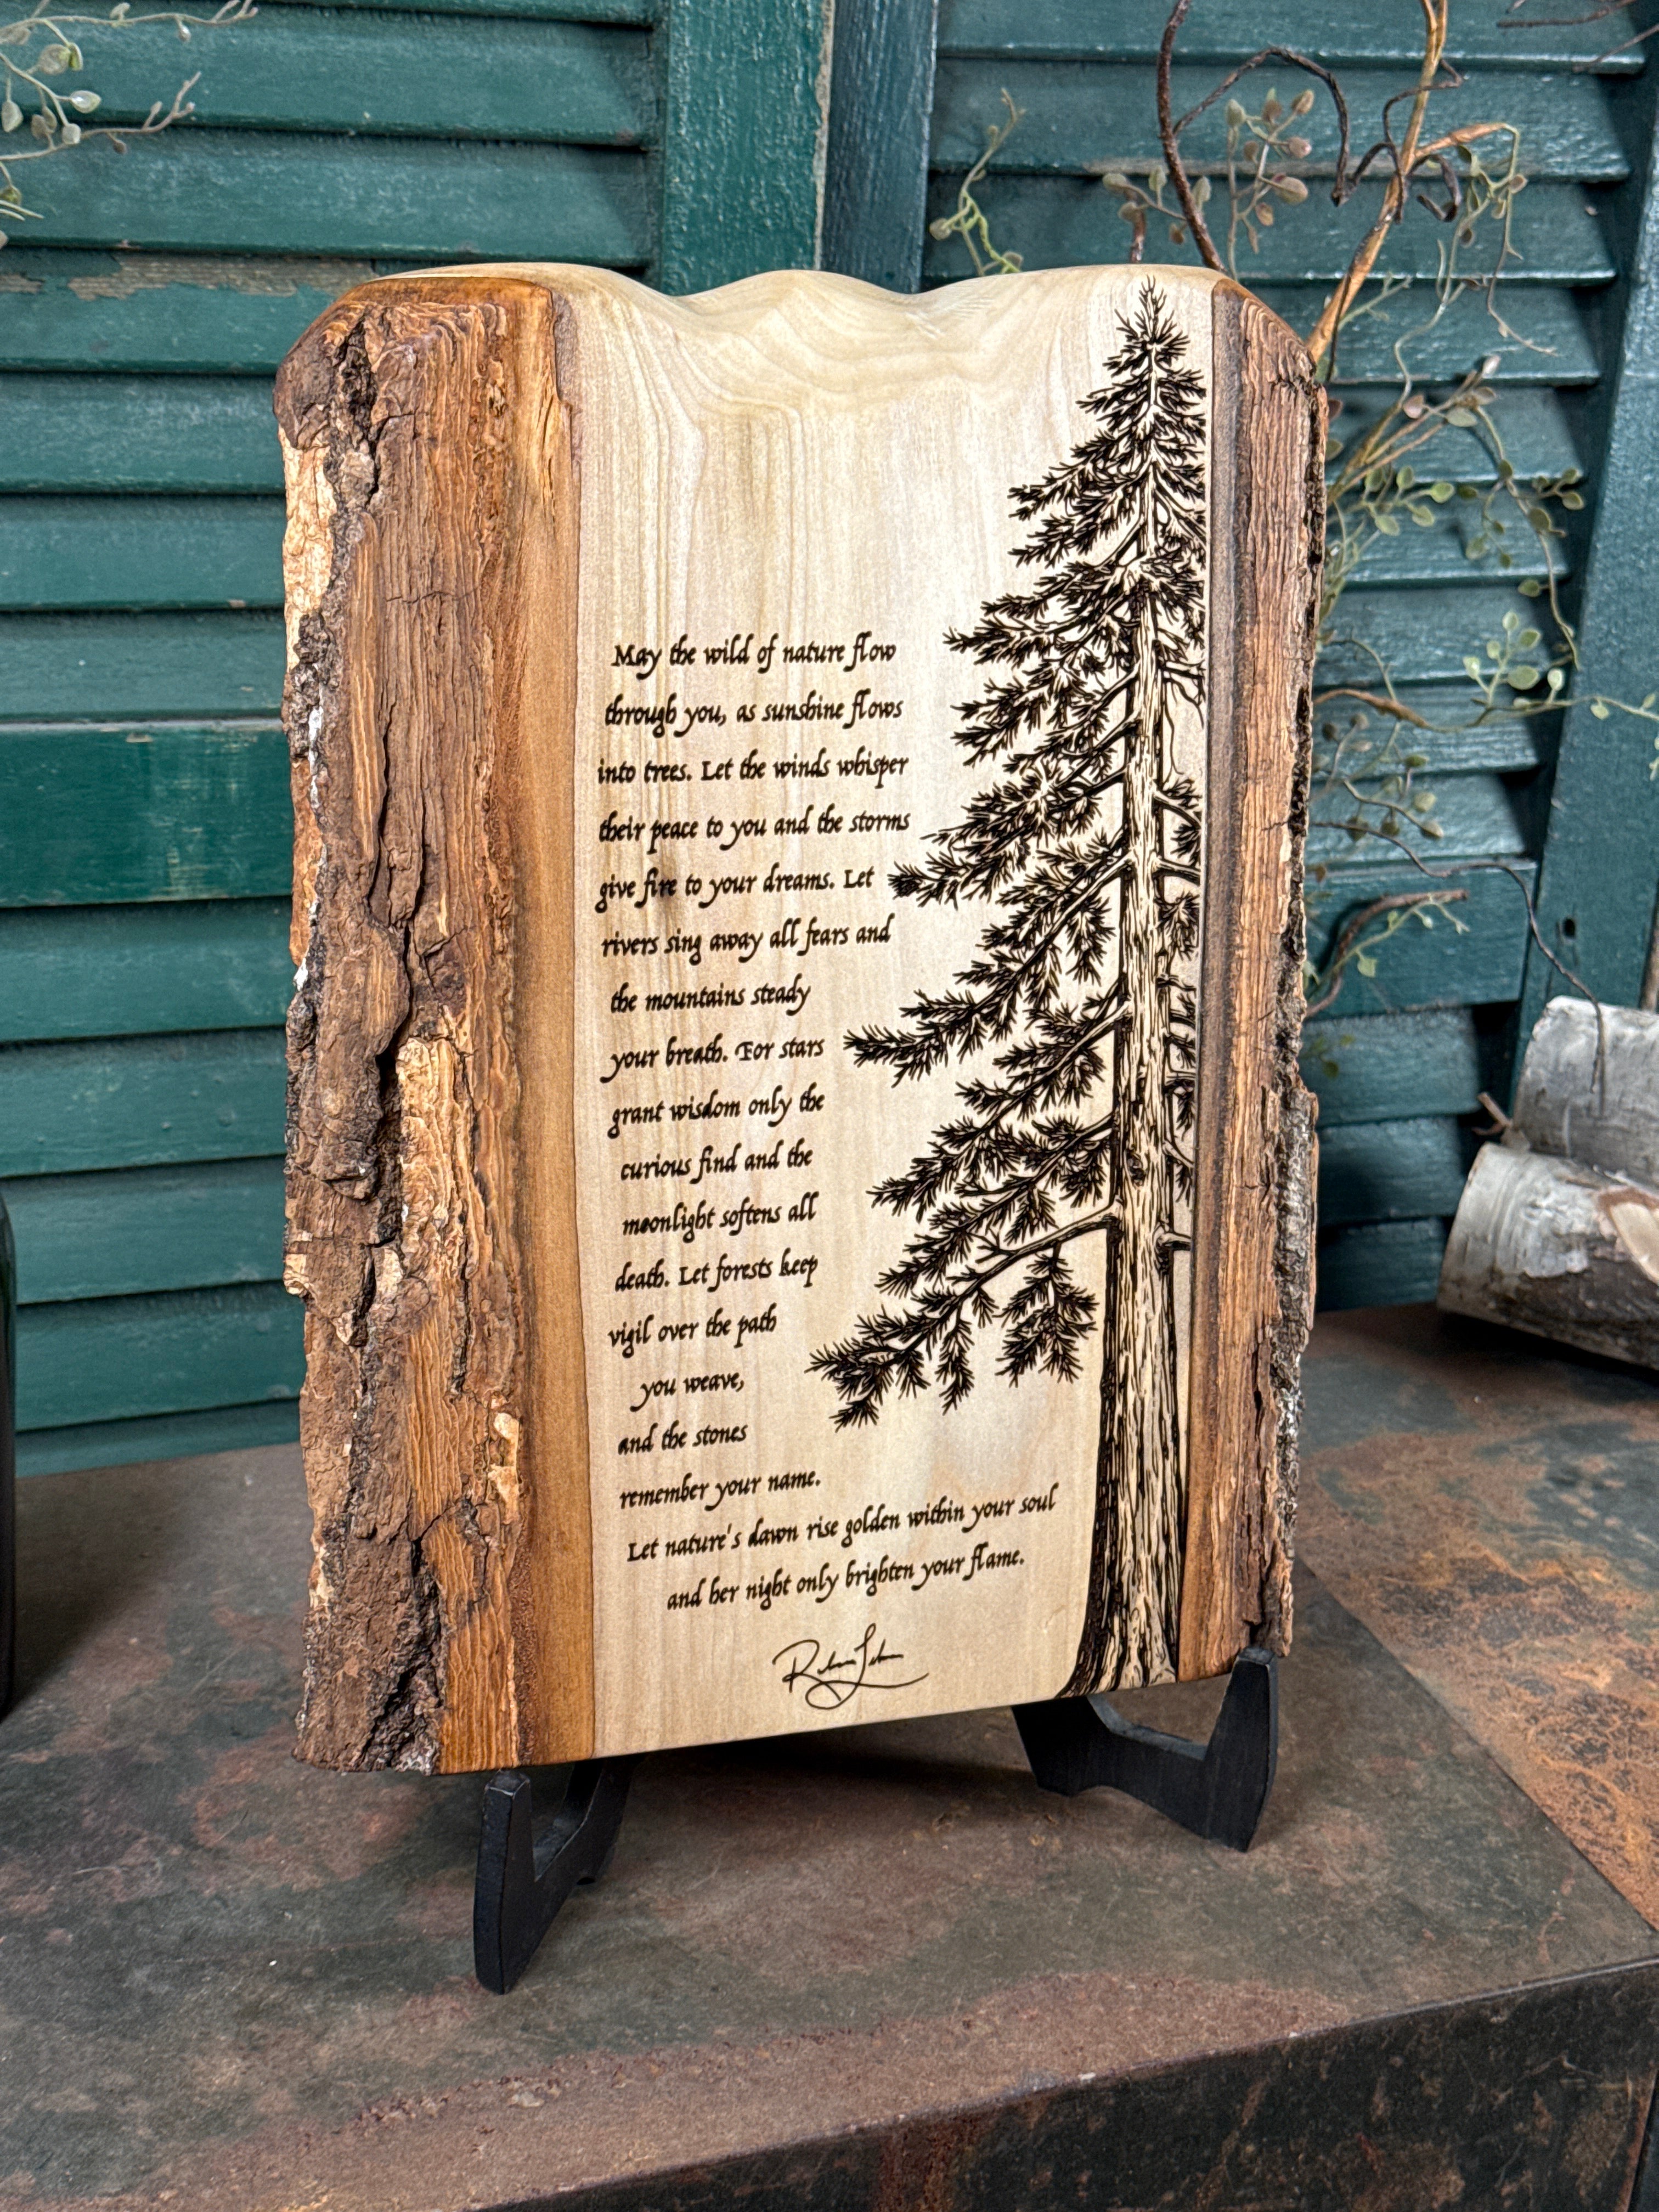 May the wild of nature flow
through you, as sunshine flows
into trees. Let the winds whisper
their peace to you and the storms
give fire to your dreams. Let
rivers sing away all fears and
the mountains steady
your breath. For stars
grant wisdom only the
curious find and the
moonlight softens all
death. Let forests keep
vigil over the path
you weave,
and the stones
remember your name.
Let nature's dawn rise golden within your soul
and her night only brighten your flame.